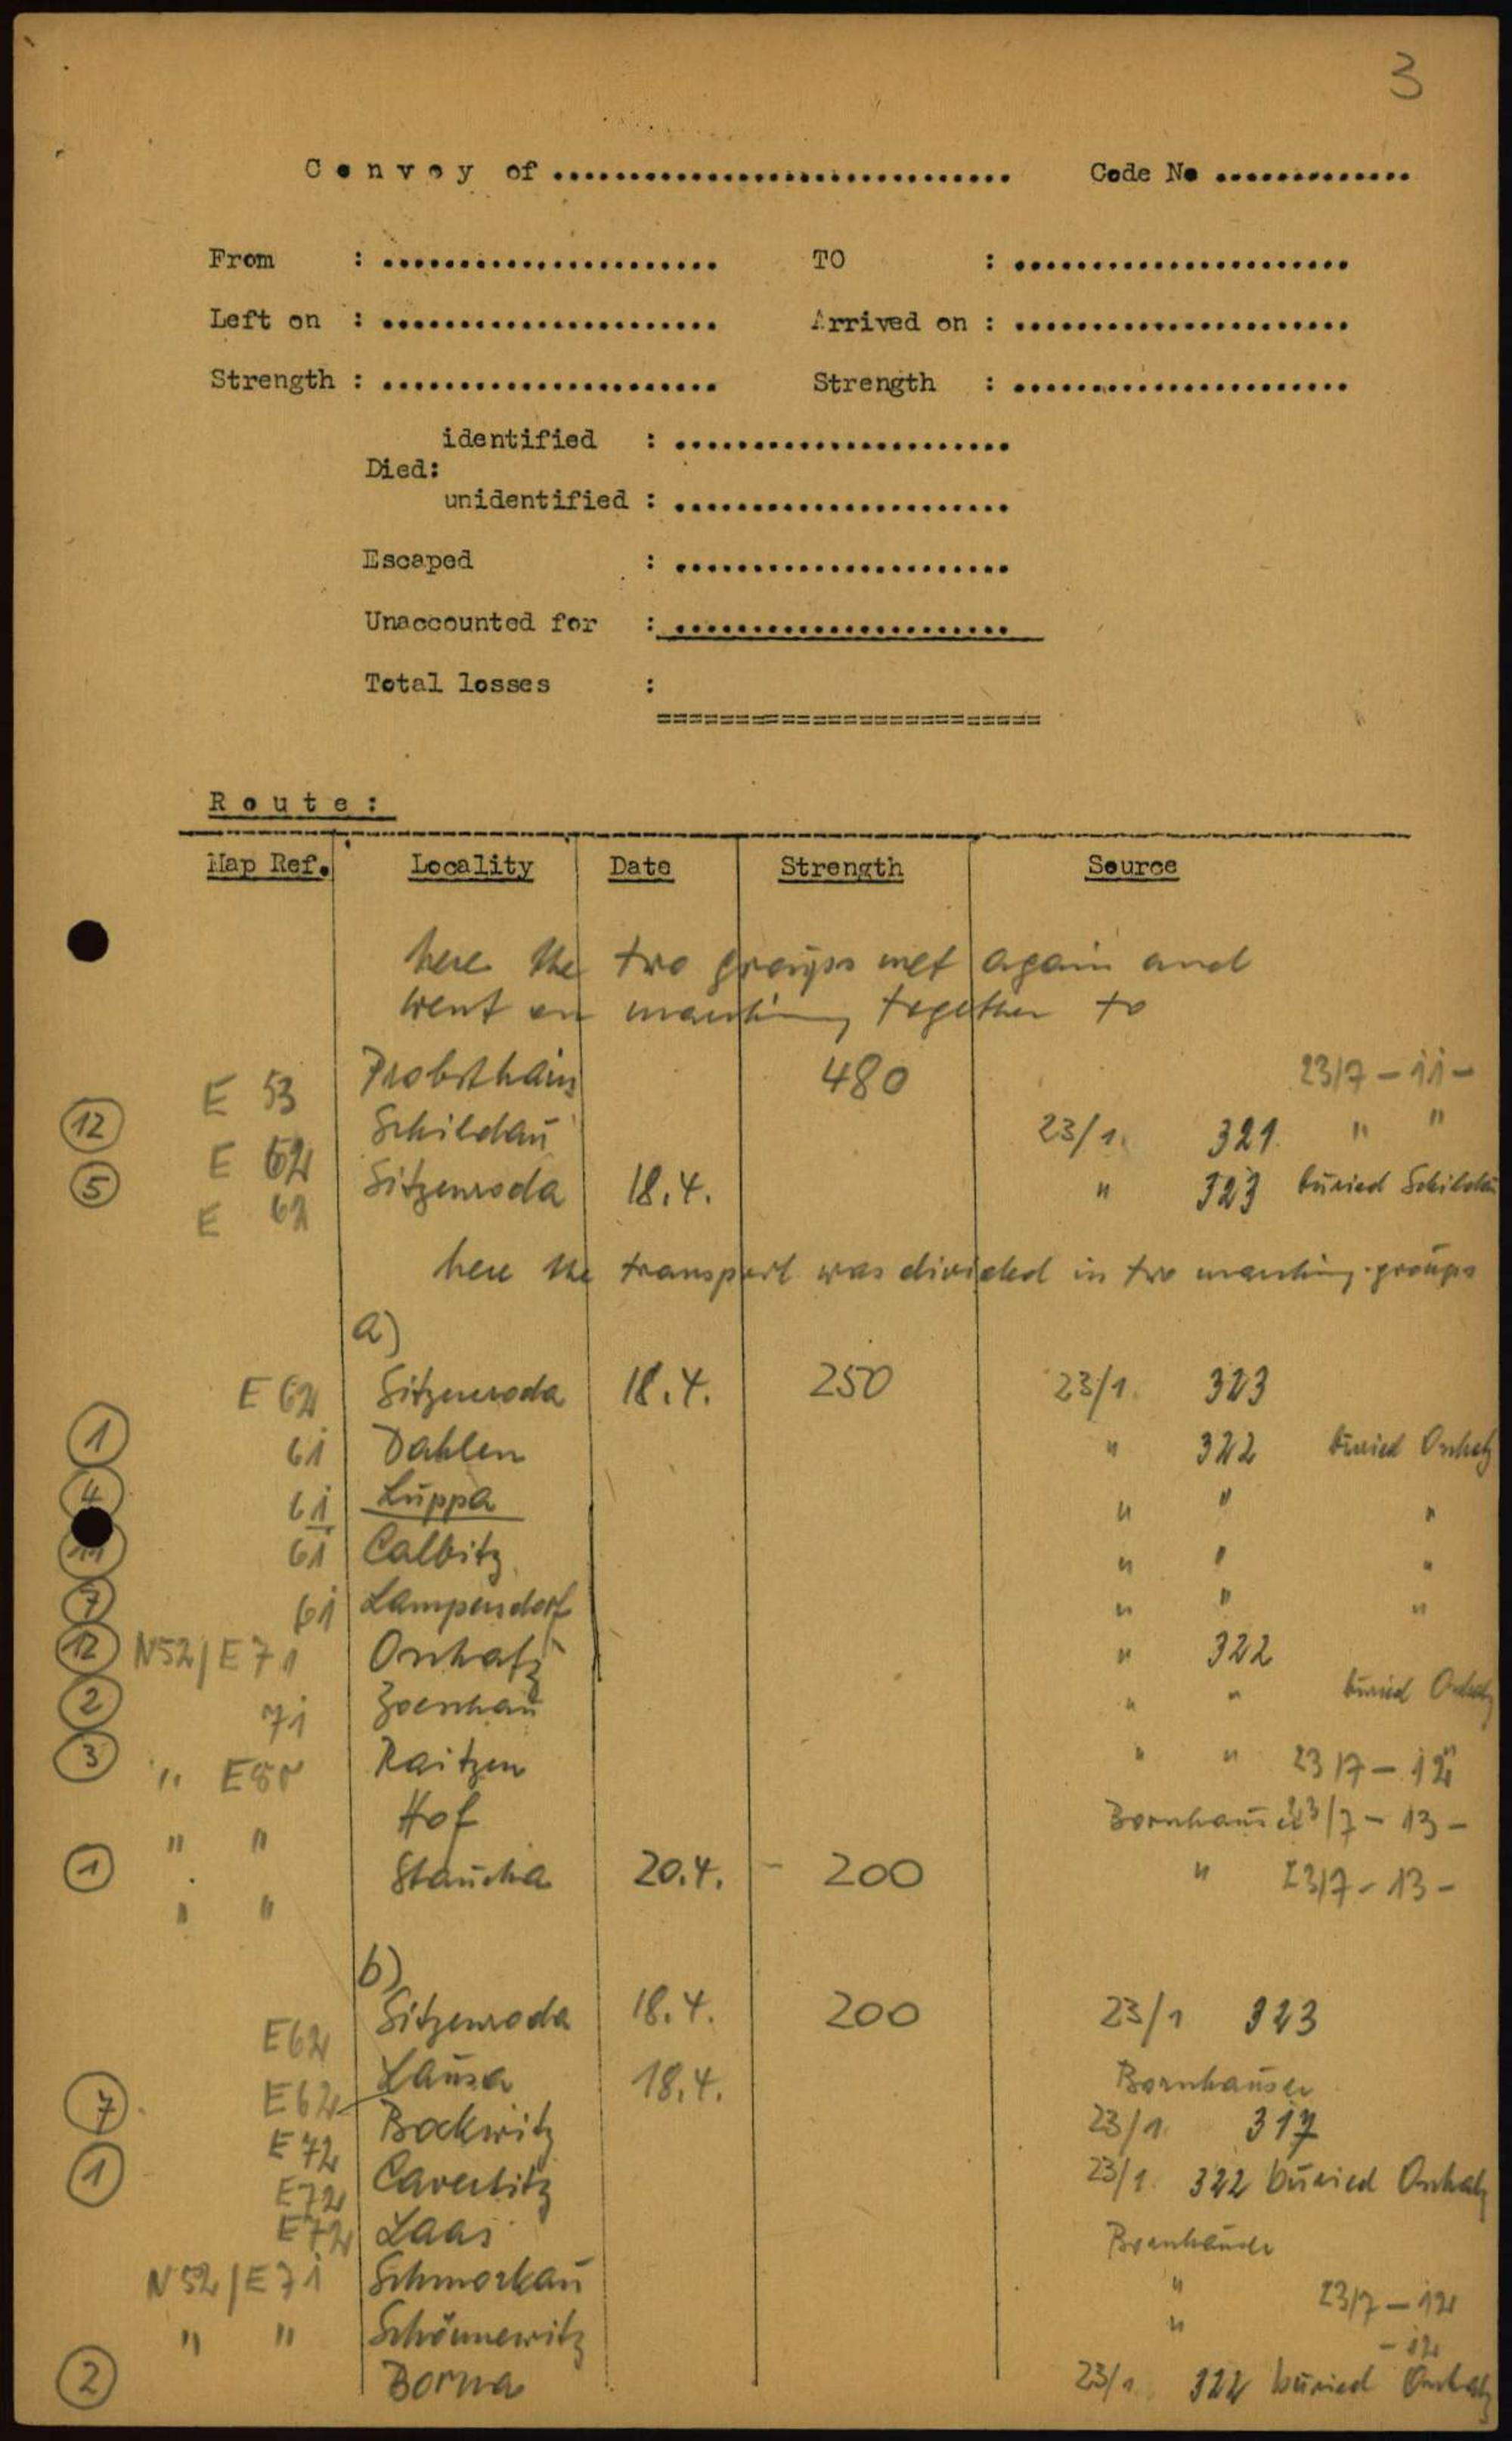 3
Convoy of .............................. Code No .............
From : ...................... TO : ......................
Left on : ...................... Arrived on : ......................
Strength : ...................... Strength : ......................
identified : ......................
Died:
unidentified : ......................
Escaped : ......................
Unaccounted for : ......................
Total losses :
=========================
Route:
Map Ref. Locality Date Strength Source
here the two groups met again and
went on marching together to
E 53 Probsthain 480 23/7 - 11 -
12 E 62 Schildau 23/1. 321 " "
5 E 62 Sitzenroda 18.4. " 323 buried Schildau
here the transport was divided in two marching groups
a)
E 62 Sitzenroda 18.4. 250 23/1. 323
1 61 Dahlen " 322 buried Oschatz
4 61 Luppa " " "
11 61 Calbitz " " "
7 61 Lampersdorf " " "
12 N52/E71 Oschatz " 322
2 71 Zoeschau " " buried Oschatz
3 " E80 Raitzen " " 23/7 - 12
" " Hof Bornhauser 23/7 - 13 -
1 " " Staucha 20.4. - 200 " 23/7 - 13 -
b)
E62 Sitzenroda 18.4. 200 23/1 323
E62 Lausa 18.4. Bornhauser
7 E72 Bockwitz 23/1. 317
1 E72 Cavertitz 23/1. 322 buried Oschatz
E72 Laas Bornhauser
N52/E71 Schmorkau " 23/7 - 12
" " Schönnewitz " - 12
2 Borna 23/1. 322 buried Oschatz